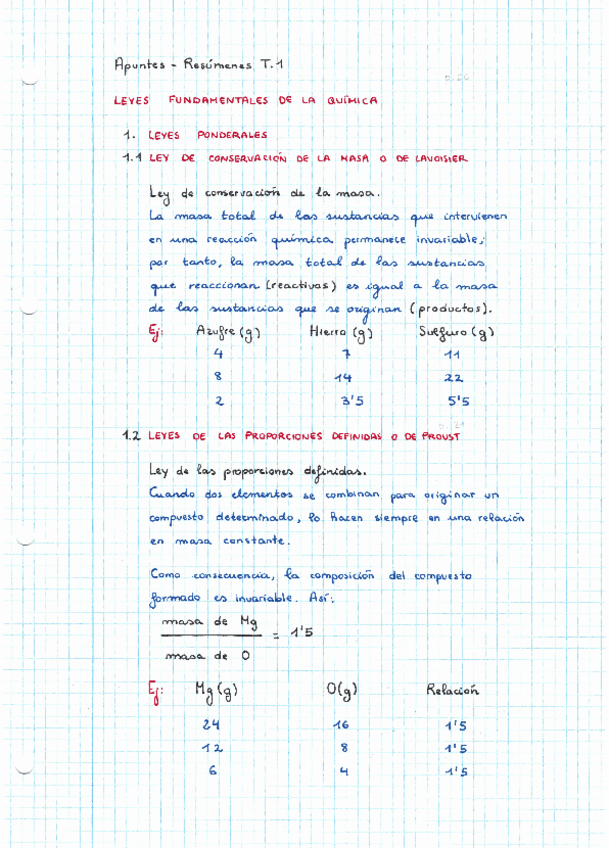 Apuntes - Resúmenes T.1
LEYES FUNDAMENTALES DE LA QUÍMICA
1. LEYES PONDERALES
1.1 LEY DE CONSERVACIÓN DE LA MASA O DE LAVOISIER
Ley de conservación de la masa.
La masa total de las sustancias que intervienen
en una reacción química permanece invariable;
por tanto, la masa total de las sustancias
que reaccionan (reactivas) es igual a la masa
de las sustancias que se originan (productos).
Ej: Azufre (g) Hierro (g) Sulfuro (g)
4 7 11
8 14 22
2 3'5 5'5
1.2 LEYES DE LAS PROPORCIONES DEFINIDAS O DE PROUST
Ley de las proporciones definidas.
Cuando dos elementos se combinan para originar un
compuesto determinado, lo hacen siempre en una relación
en masa constante.
Como consecuencia, la composición del compuesto
formado es invariable. Así:
masa de Mg
= 1'5
masa de O
Ej: Mg (g) O(g) Relación
24 16 1'5
12 8 1'5
6 4 1'5